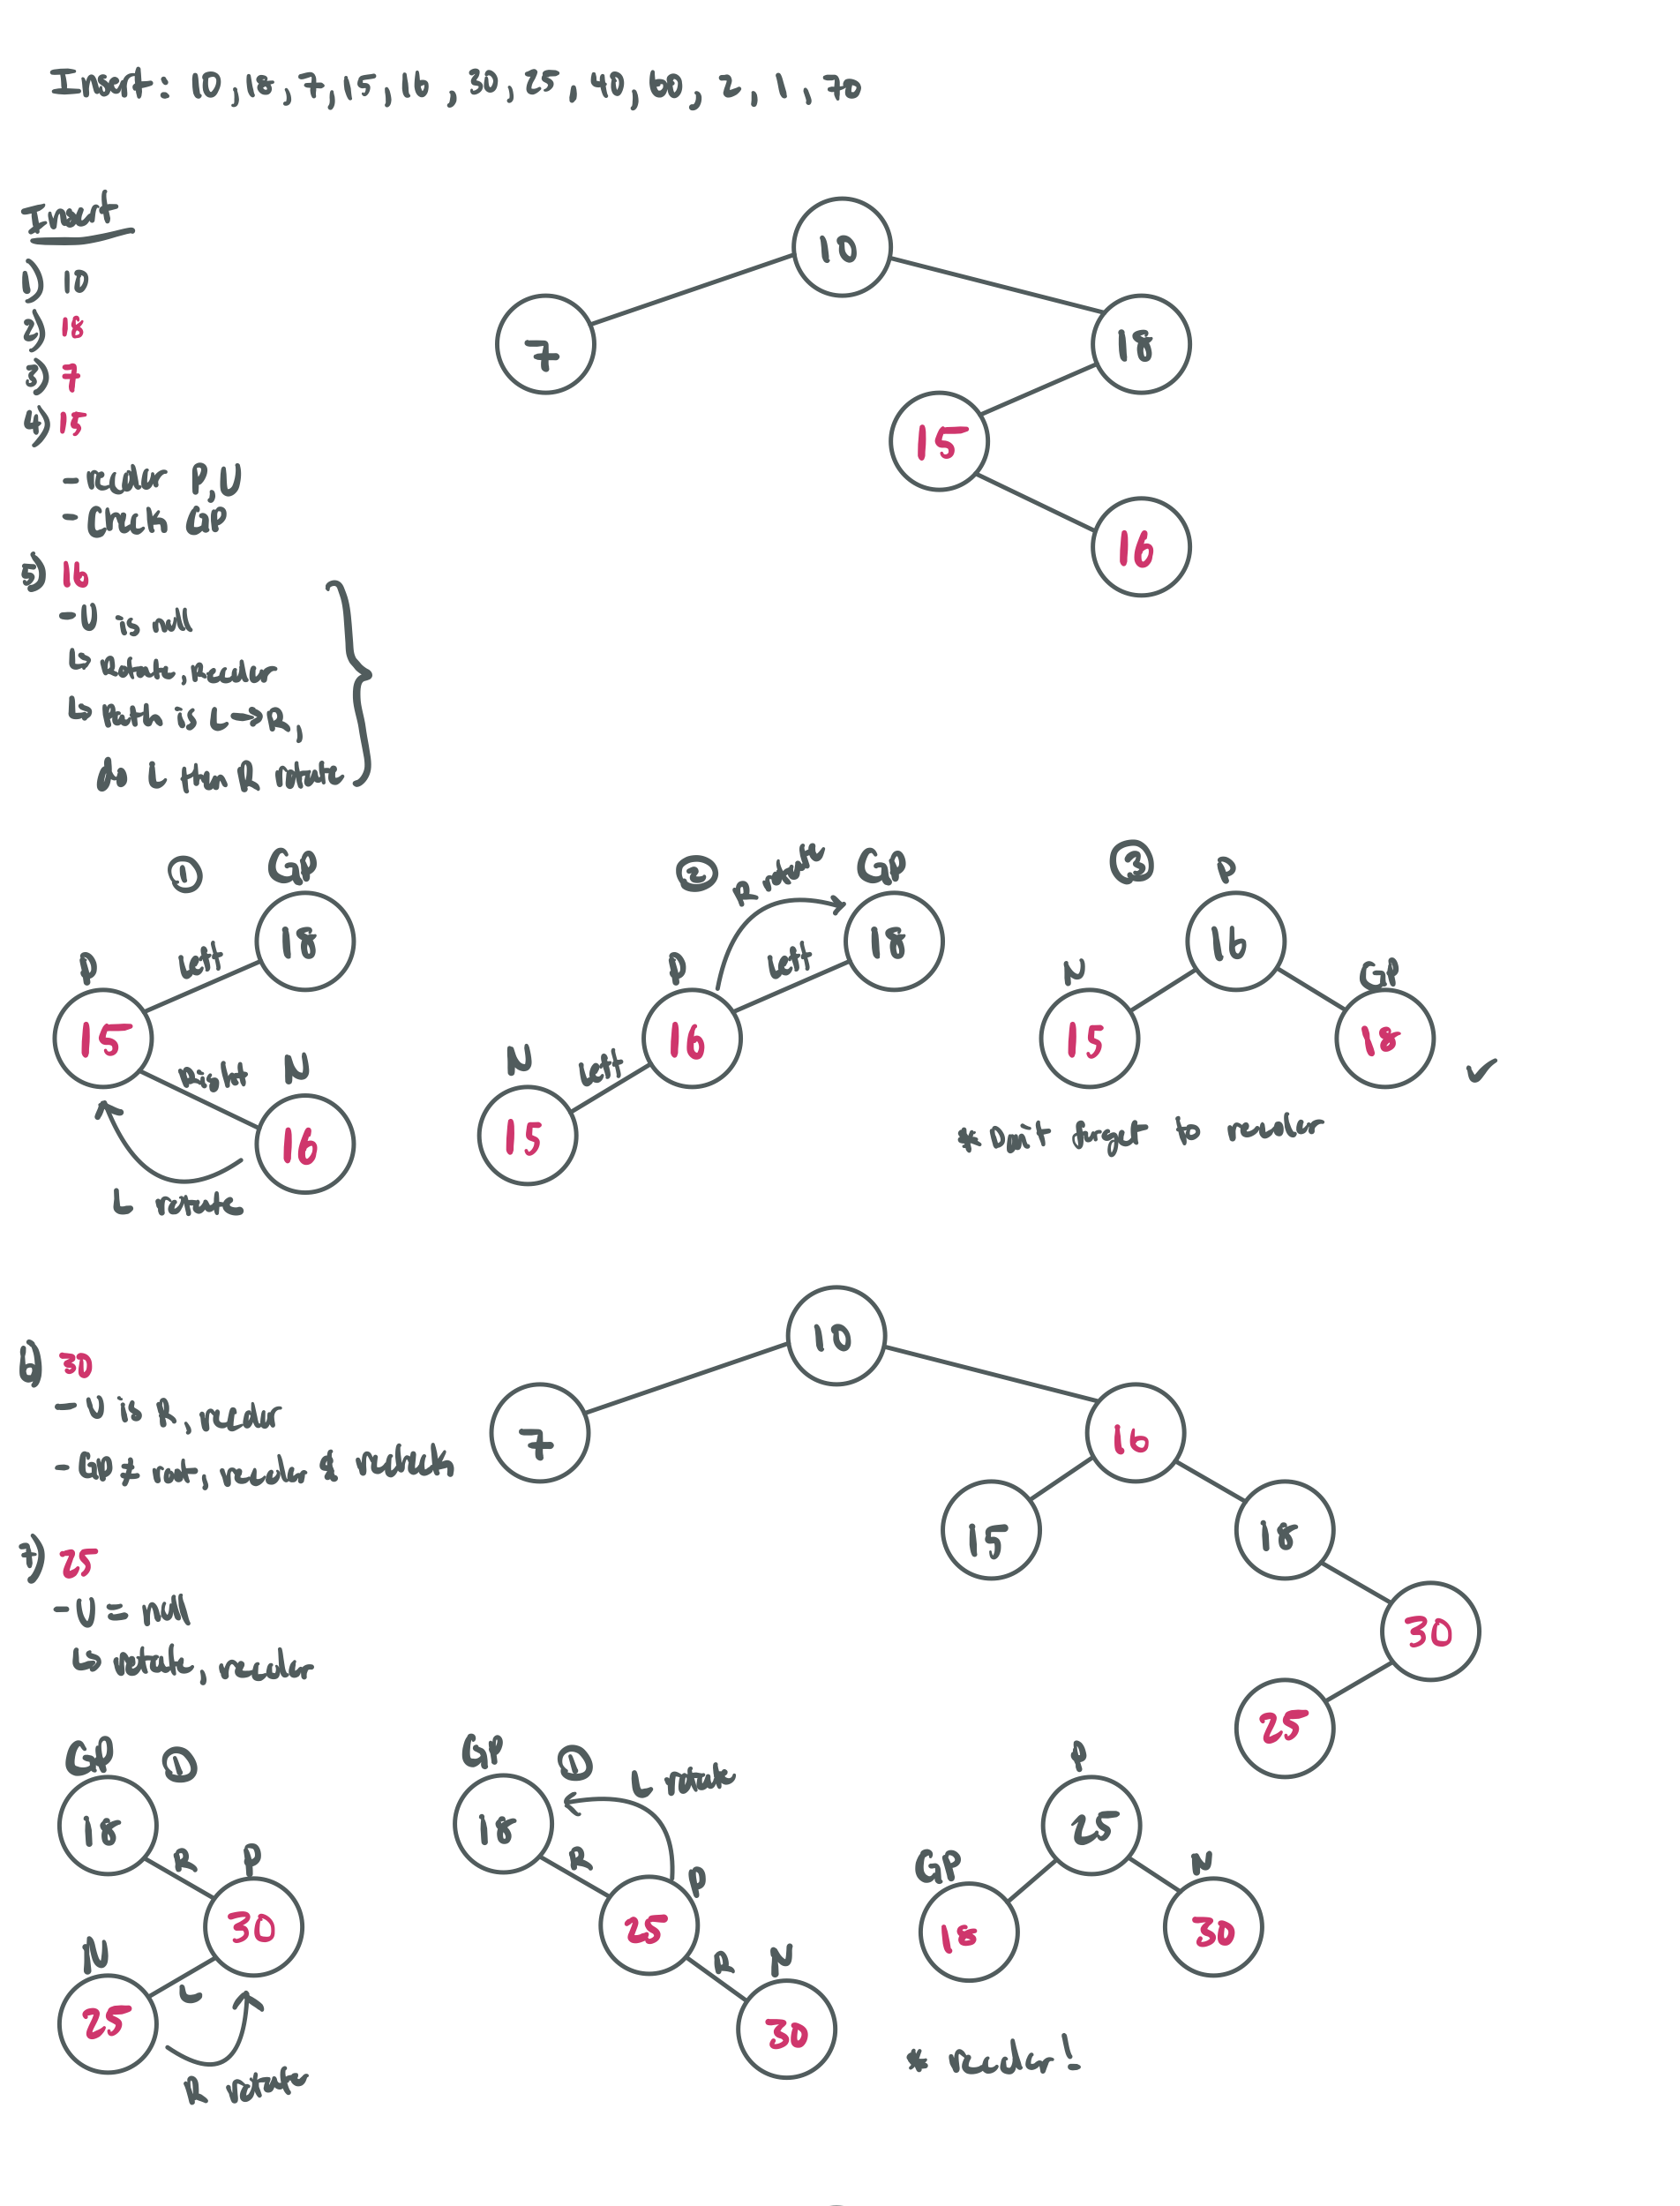 Insert: 10, 18, 7, 15, 16, 30, 25, 40, 60, 2, 1, 70
Insert
1) 10
2) 18
3) 7
4) 15
- recolor P, U
- Check GP
5) 16
- U is null
↳ Rotate, Recolor
↳ Path is L→R,
do L then R rotate
10
7
18
15
16
① GP
18
P
Left
15
Right
N
16
L rotate
② R rotate GP
18
P
Left
16
N
Left
15
③ P
16
N
GP
15
18
✓
* Don't forget to recolor
6) 30
- U is R, recolor
- GP ≠ root, recolor & recheck
7) 25
- U = null
↳ rotate, recolor
10
7
16
15
18
30
25
GP ①
18
R
P
30
N
L
25
R rotate
GP ① L rotate
18
R
P
25
R
N
30
P
25
GP
N
18
30
* recolor!